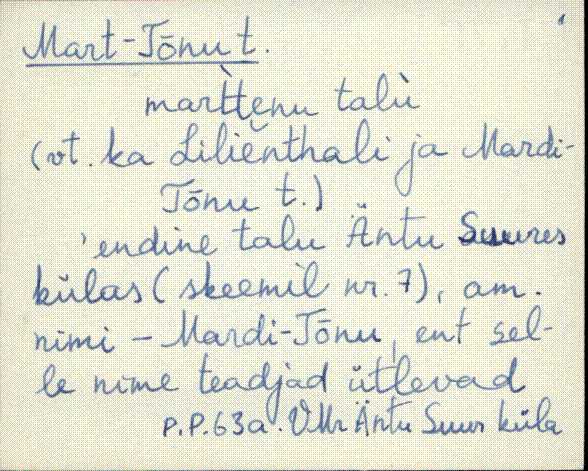 Mart-Tõnu t.
marttenu talù
(vt. ka Lilienthali ja Mardi-
Tõnu t.)
'endine talu Äntu Suures
külas (skeemil nr. 7), am.
nimi – Mardi-Tõnu, ent sel-
le nime teadjad ütlevad
P.P. 63a. VMr Äntu Suur küla